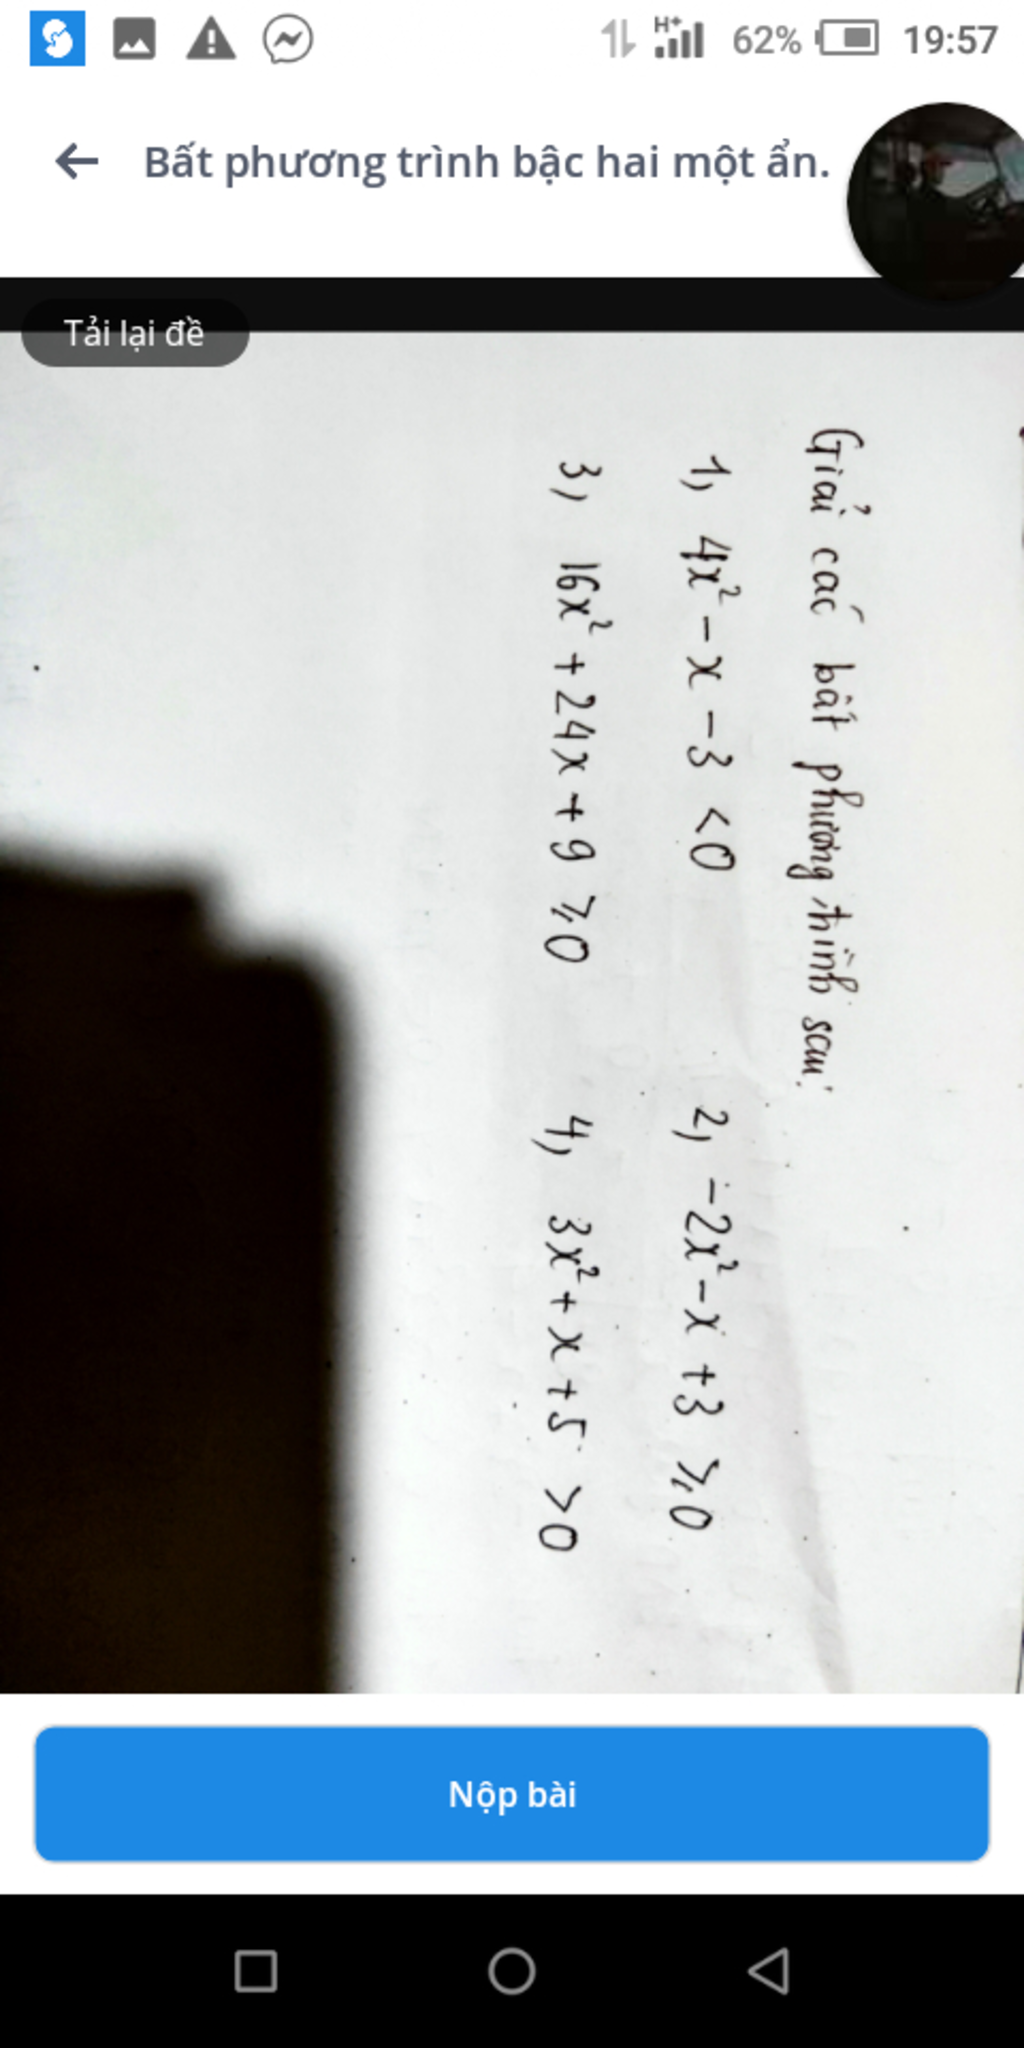 62% 19:57
Bất phương trình bậc hai một ẩn.
Tải lại đề
Giải các bất phương trình sau:
1, 4x² - x - 3 < 0
2, -2x² - x + 3 ⩾ 0
3, 16x² + 24x + 9 ⩾ 0
4, 3x² + x + 5 > 0
Nộp bài